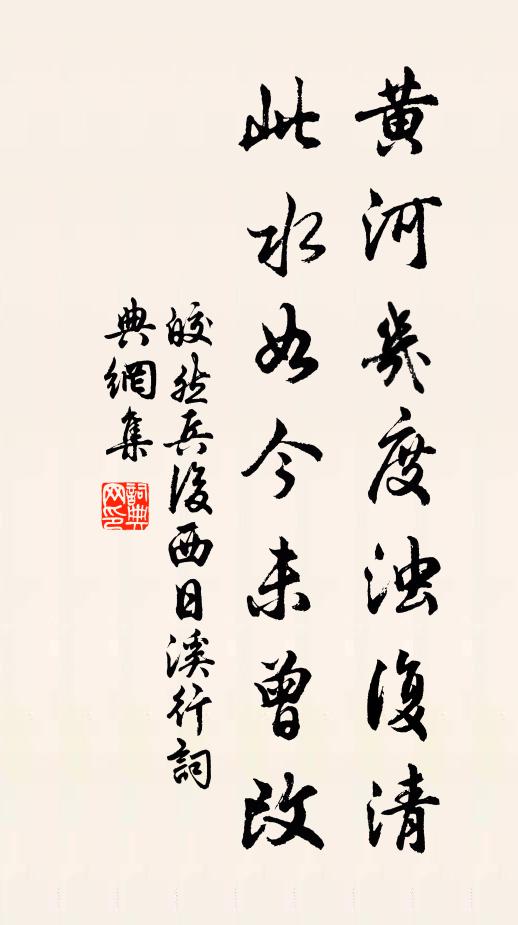 黄河幾度浊復清
此水如今未曾改
皎然兵後西日溪行詞
典網集
詞典
网印